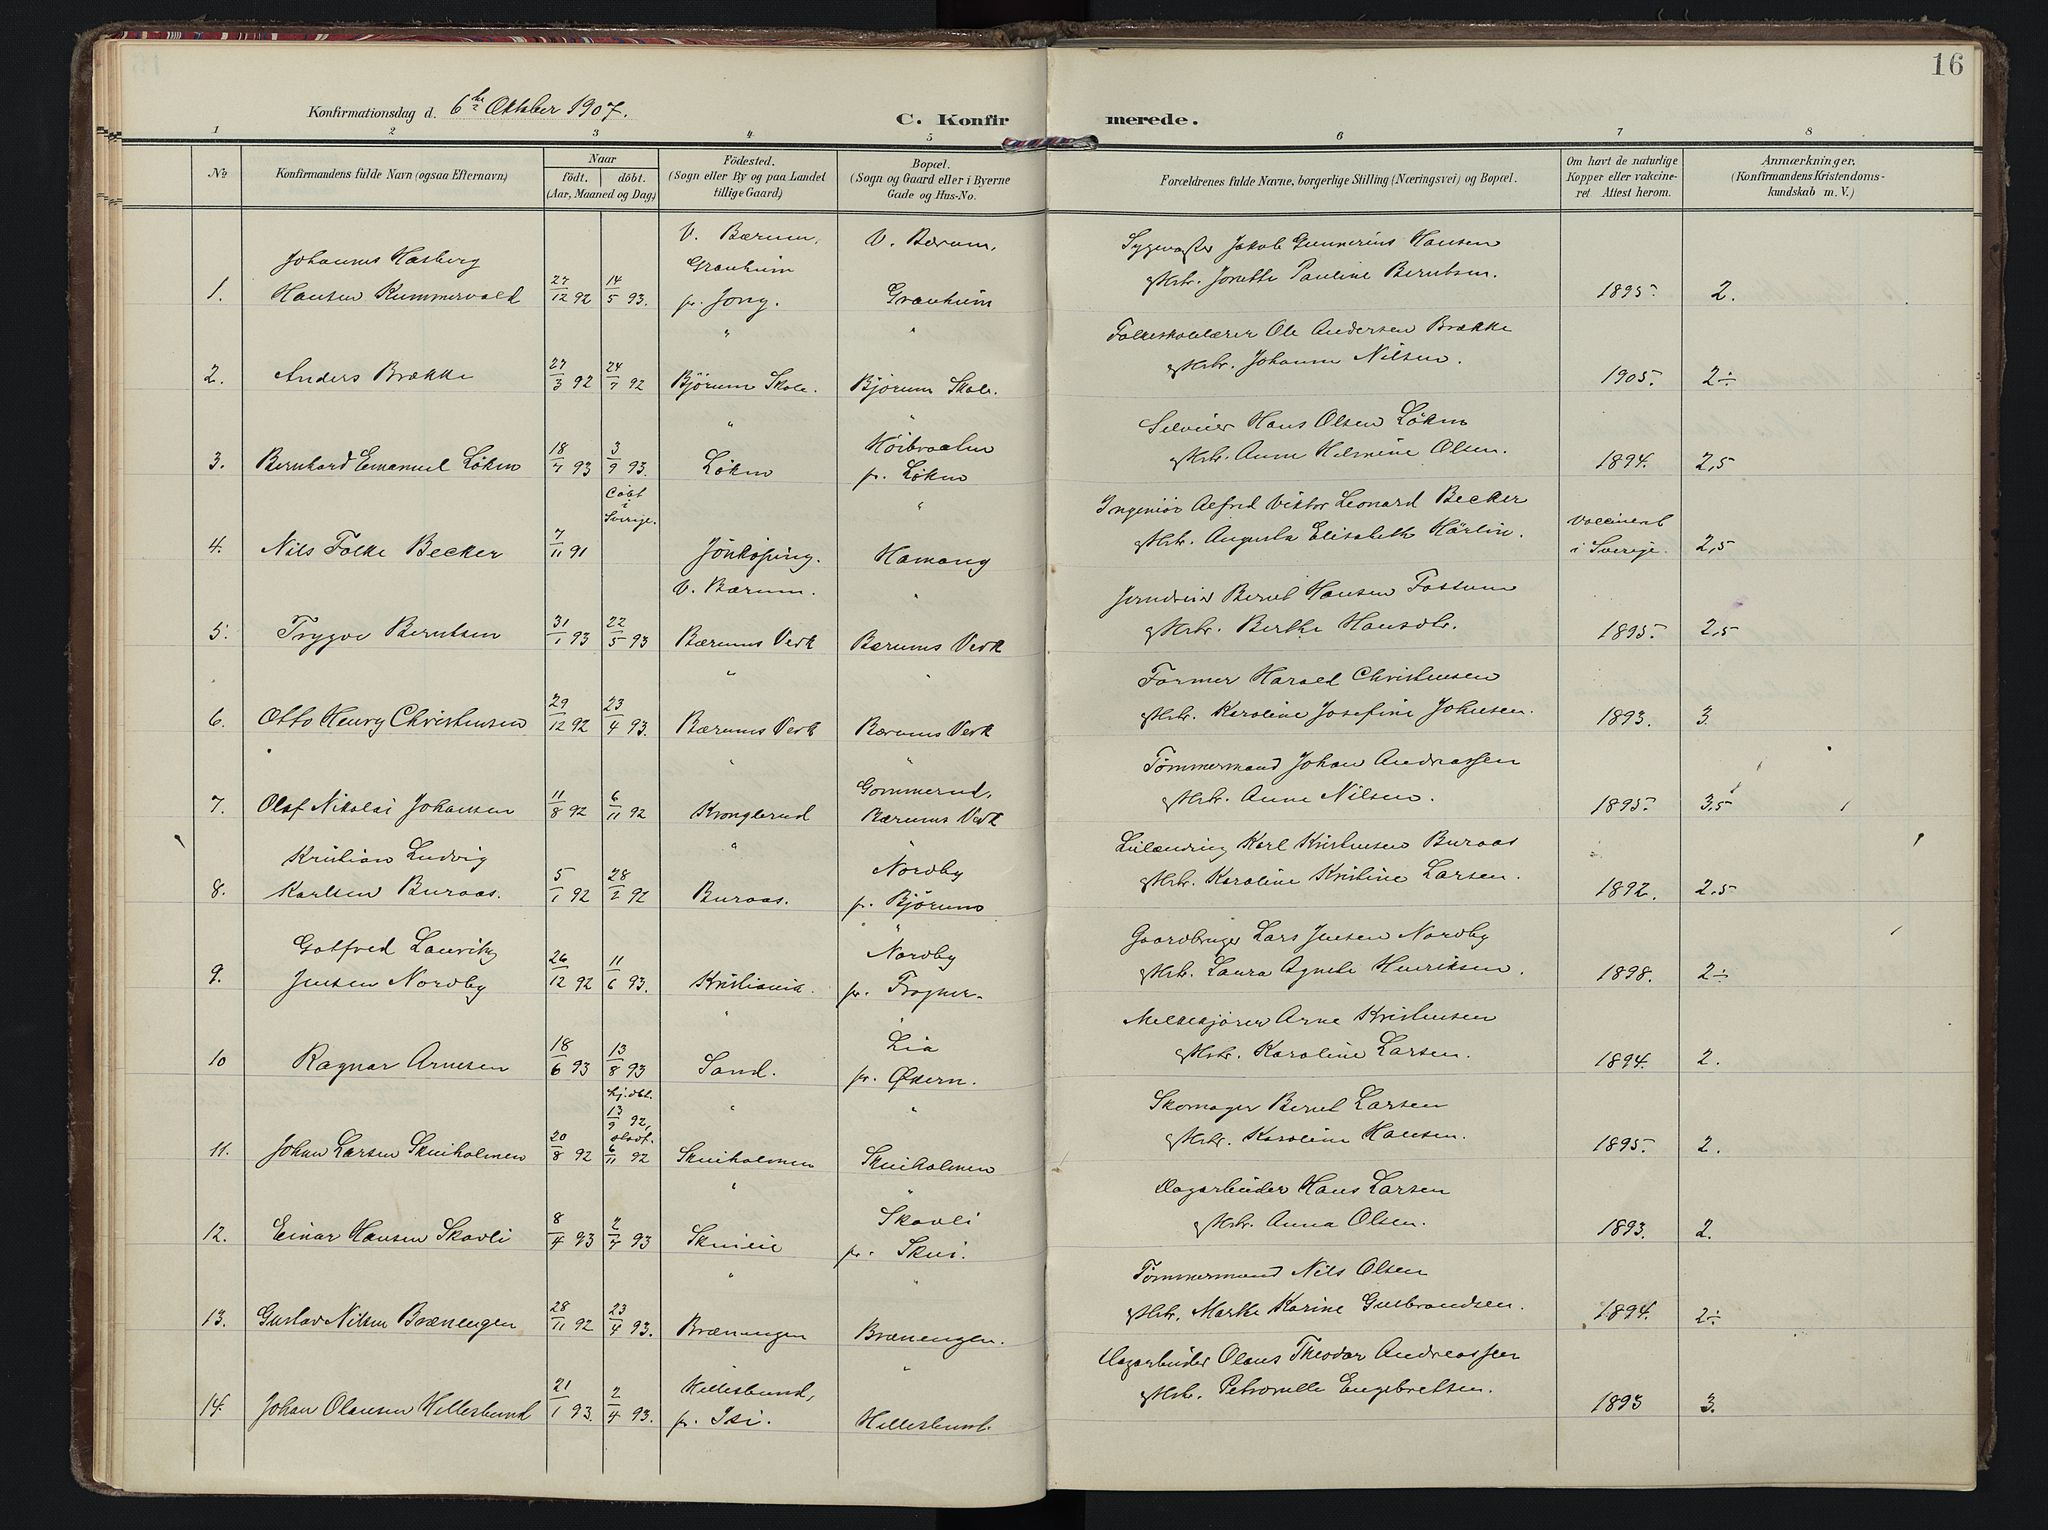 16
Konfirmationsdag d. 6te Oktober 1907.
C. Konfirmerede.
1 2 3 4 5 6 7 8
No
Konfirmandens fulde Navn (ogsaa Efternavn)
Naar
födt. döbt.
(Aar, Maaned og Dag.)
Födested.
(Sogn eller By og paa Landet
tillige Gaard.)
Bopæl.
(Sogn og Gaard eller i Byerne
Gade og Hus-No.
Forældrenes fulde Navne, borgerlige Stilling (Næringsvei) og Bopæl.
Om havt de naturlige
Kopper eller vakcine-
ret Attest herom.
Anmærkninger.
(Konfirmandens Kristendoms-
kundskab m. V.)
V. Bærum, V. Bærum,
Johannes Hasberg Granheim Jakob Gunnerius Hansen
1. Hansen Kummervold 27/12 92 14/5 93. pr. Jong. Granheim Jonette Pauline Berntsen. 1895. 2.
" " Folkeskolelærer Ole Andersen Brække
2. Anders Brække 27/3 92 24/7 92 Bjørum Skole. Bjørum Skole. Johanne Nilsen. 1905. 2÷
" " Selveier Hans Olsen Løken
3. Bernhard Emanuel Løken 18/7 93 3/9 93. Løken Høibraaten pr. Løken Anne Helmine Olsen. 1894. 2,5
Døbt i Sverige. " Ingeniør Alfred Viktor Leonard Becker
4. Nils Folke Becker 7/11 91 Jönköping. Hamang Augusta Elisabeth Härlin. Vaccineret i Sverige. 2,5
V. Bærum. " Bernt Hansen Fossum
5. Trygve Berntsen 31/1 93 22/5 93 Bærums Verk Bærums Verk Berthe Hansdtr. 1895. 2,5
" " Former Harald Christensen
6. Otto Henry Christensen 29/12 92 23/4 93. Bærums Verk Bærums Verk Karoline Josefine Johnsen. 1893. 3.
" " Tømmermand Johan Andreassen
7. Olaf Nikolai Johansen 11/8 92 6/11 92 Kronglerud Gommerud, Bærums Verk Anne Nilsen. 1895. 3,5
Kristian Ludvig " Nordby Karl Kristensen Buraas
8. Karlsen Buraas. 5/1 92 28/2 92 Buraas. pr. Bjørum Karoline Kristine Larsen. 1892. 2,5
Gotfred Lauritz " Nordby Gaardbruger Lars Jensen Nordby
9. Jensen Nordby 26/12 92 11/6 93. Kristiania. pr. Frogner. Laura Agnete Henriksen. 1898. 2÷
" Lia Melkekjører Arne Kristensen
10 Ragnar Arnesen 18/6 93 13/8 93 Sand. pr. Østern. Karoline Larsen. 1894. 2.
hj.dbt. 13/9 92, stadf. " " Skomager Bernt Larsen
11. Johan Larsen Skuiholmen 20/8 92 6/11 92 Skuiholmen Skuiholmen Karoline Hansen. 1895. 2.
" " Dagarbeider Hans Larsen
12. Einar Hansen Skovli 8/4 93 2/7 93 Skuieie Skovli pr. Skui. Anna Olsen. 1893. 2.
" " Tømmermand Nils Olsen
13. Gustav Nilsen Brænengen 28/11 92 23/4 93. Brænengen Brænengen. Marthe Karine Gulbrandsen. 1894. 2÷
Hillesbund, " Dagarbeider Olaus Theodor Andreassen
14. Johan Olausen Hillesbund 21/1 93. 2/4 93. pr. Isi. Hillesbund. Petronelle Engebretsen. 1893 3.